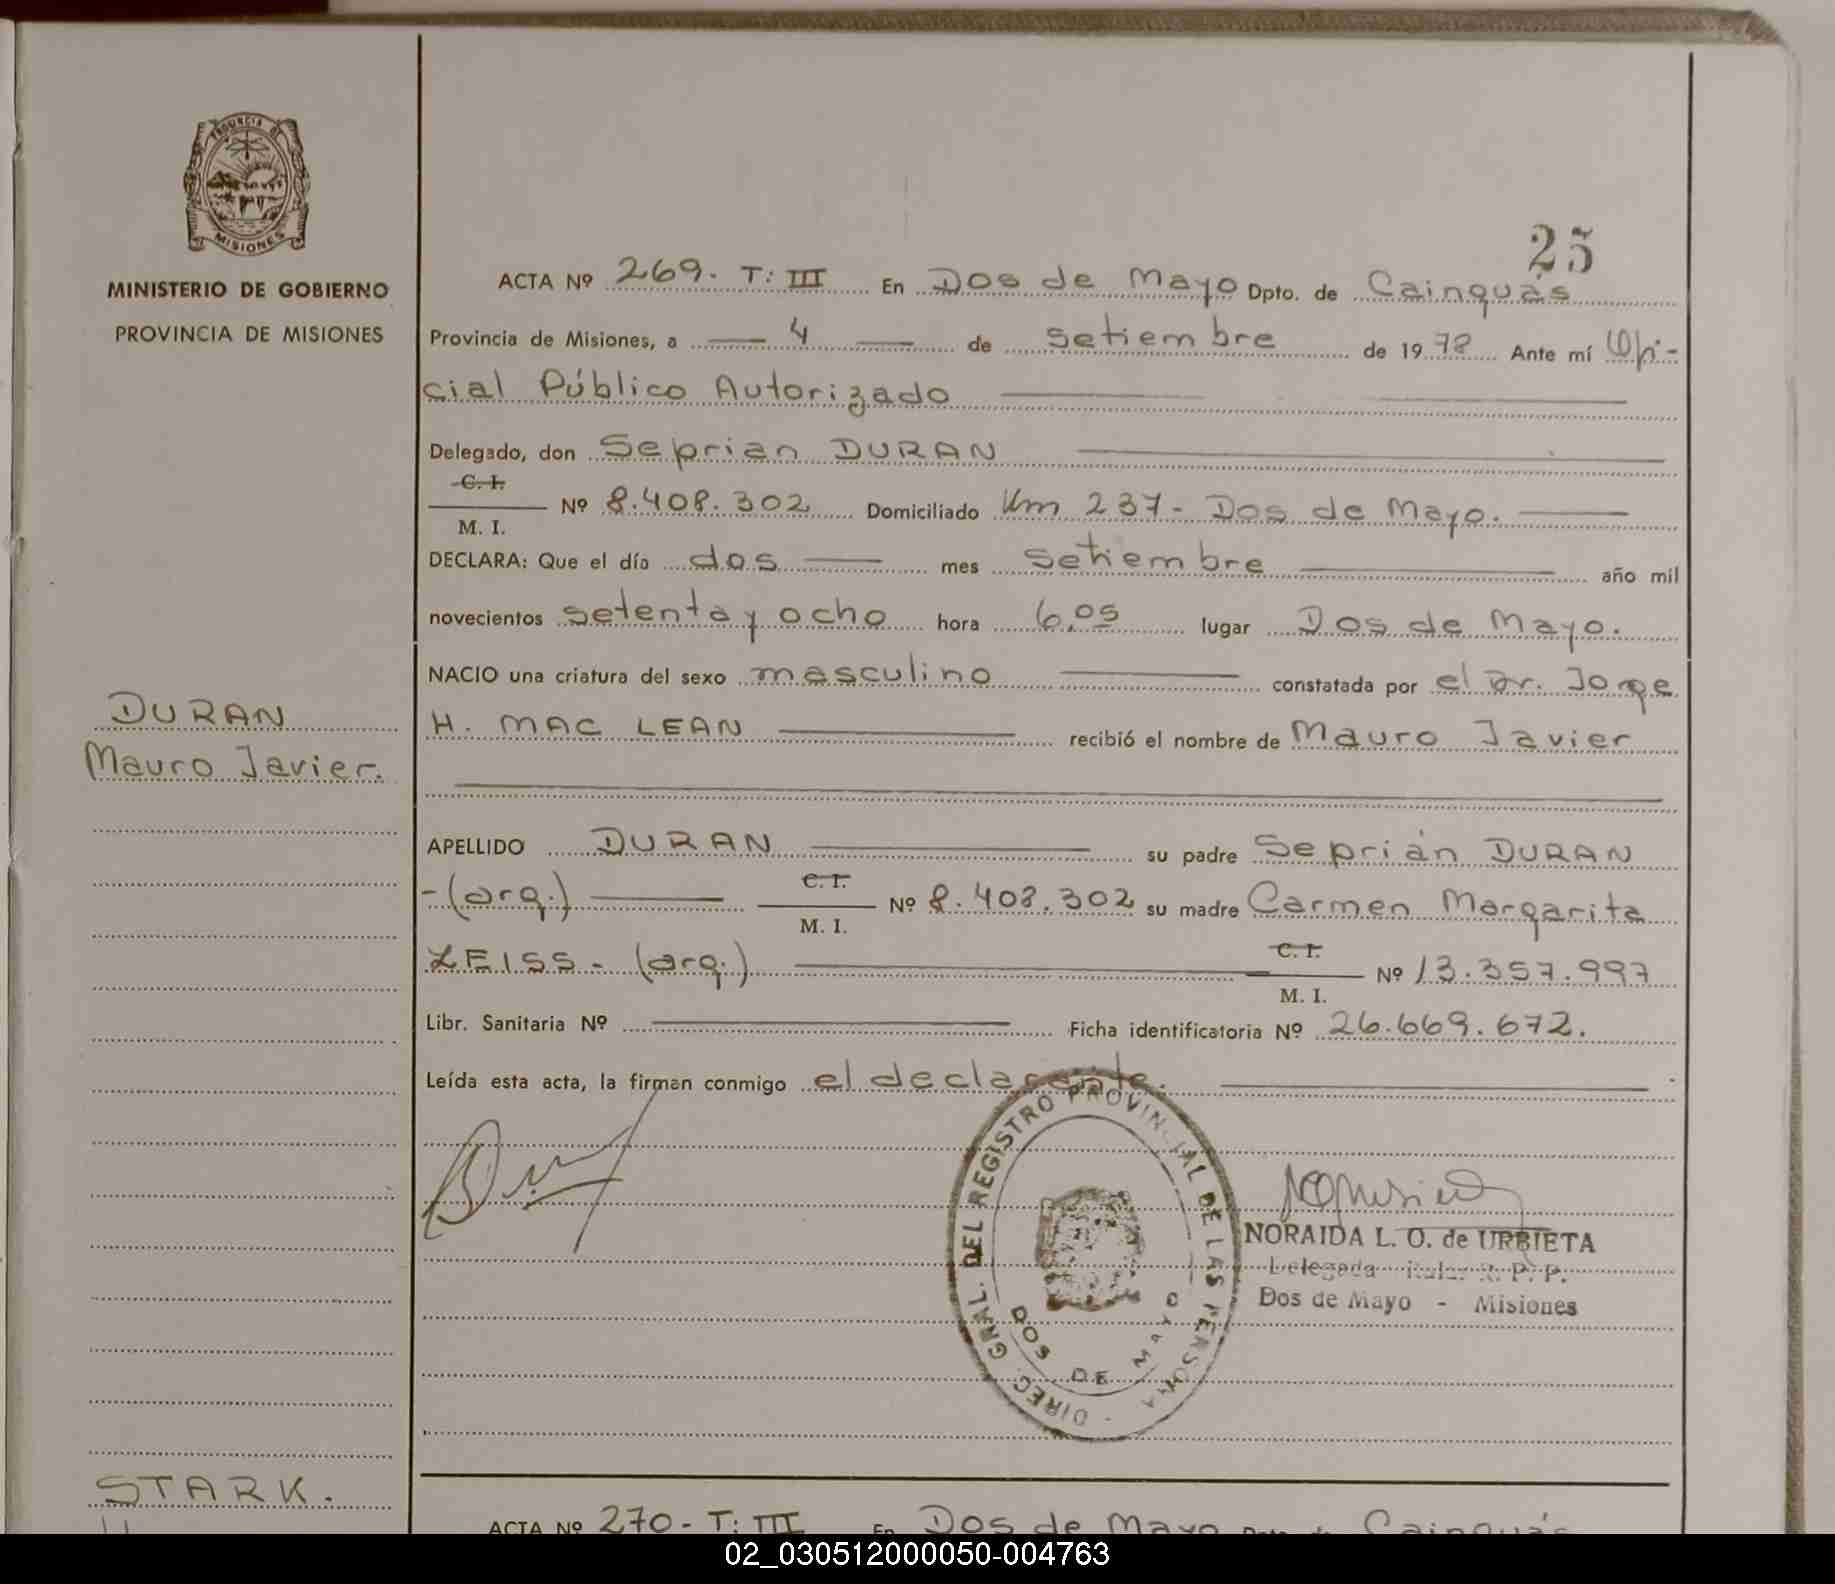 PROVINCIA DE
MISIONES
MINISTERIO DE GOBIERNO
PROVINCIA DE MISIONES
DURAN
Mauro Javier.
STARK.
25
ACTA Nº 269. T: III En Dos de Mayo Dpto. de Cainguás
Provincia de Misiones, a 4 de setiembre de 1978 Ante mí Ofi-
cial Público Autorizado
Delegado, don Seprian DURAN
C. I.
M. I. Nº 8.408.302 Domiciliado Km 237- Dos de Mayo.
DECLARA: Que el día dos mes setiembre año mil
novecientos setenta y ocho hora 6,05 lugar Dos de Mayo.
NACIO una criatura del sexo masculino constatada por el Dr. Jorge
H. MAC LEAN recibió el nombre de Mauro Javier
APELLIDO DURAN su padre Seprián DURAN
-(arg.) C. I.
M. I. Nº 8.408.302 su madre Carmen Margarita
ZEISS- (arg.) C. I.
M. I. Nº 13.357.997
Libr. Sanitaria Nº Ficha identificatoria Nº 26.669.672.
Leída esta acta, la firman conmigo el declarante.
DIREC. GRAL. DEL REGISTRO PROVINCIAL DE LAS PERSONAS
DOS DE MAYO
NORAIDA L. O. de URBIETA
Delegada R. P. P.
Dos de Mayo - Misiones
ACTA Nº 270- T: III En Dos de Mayo Dpto. de Cainguás
02_030512000050-004763